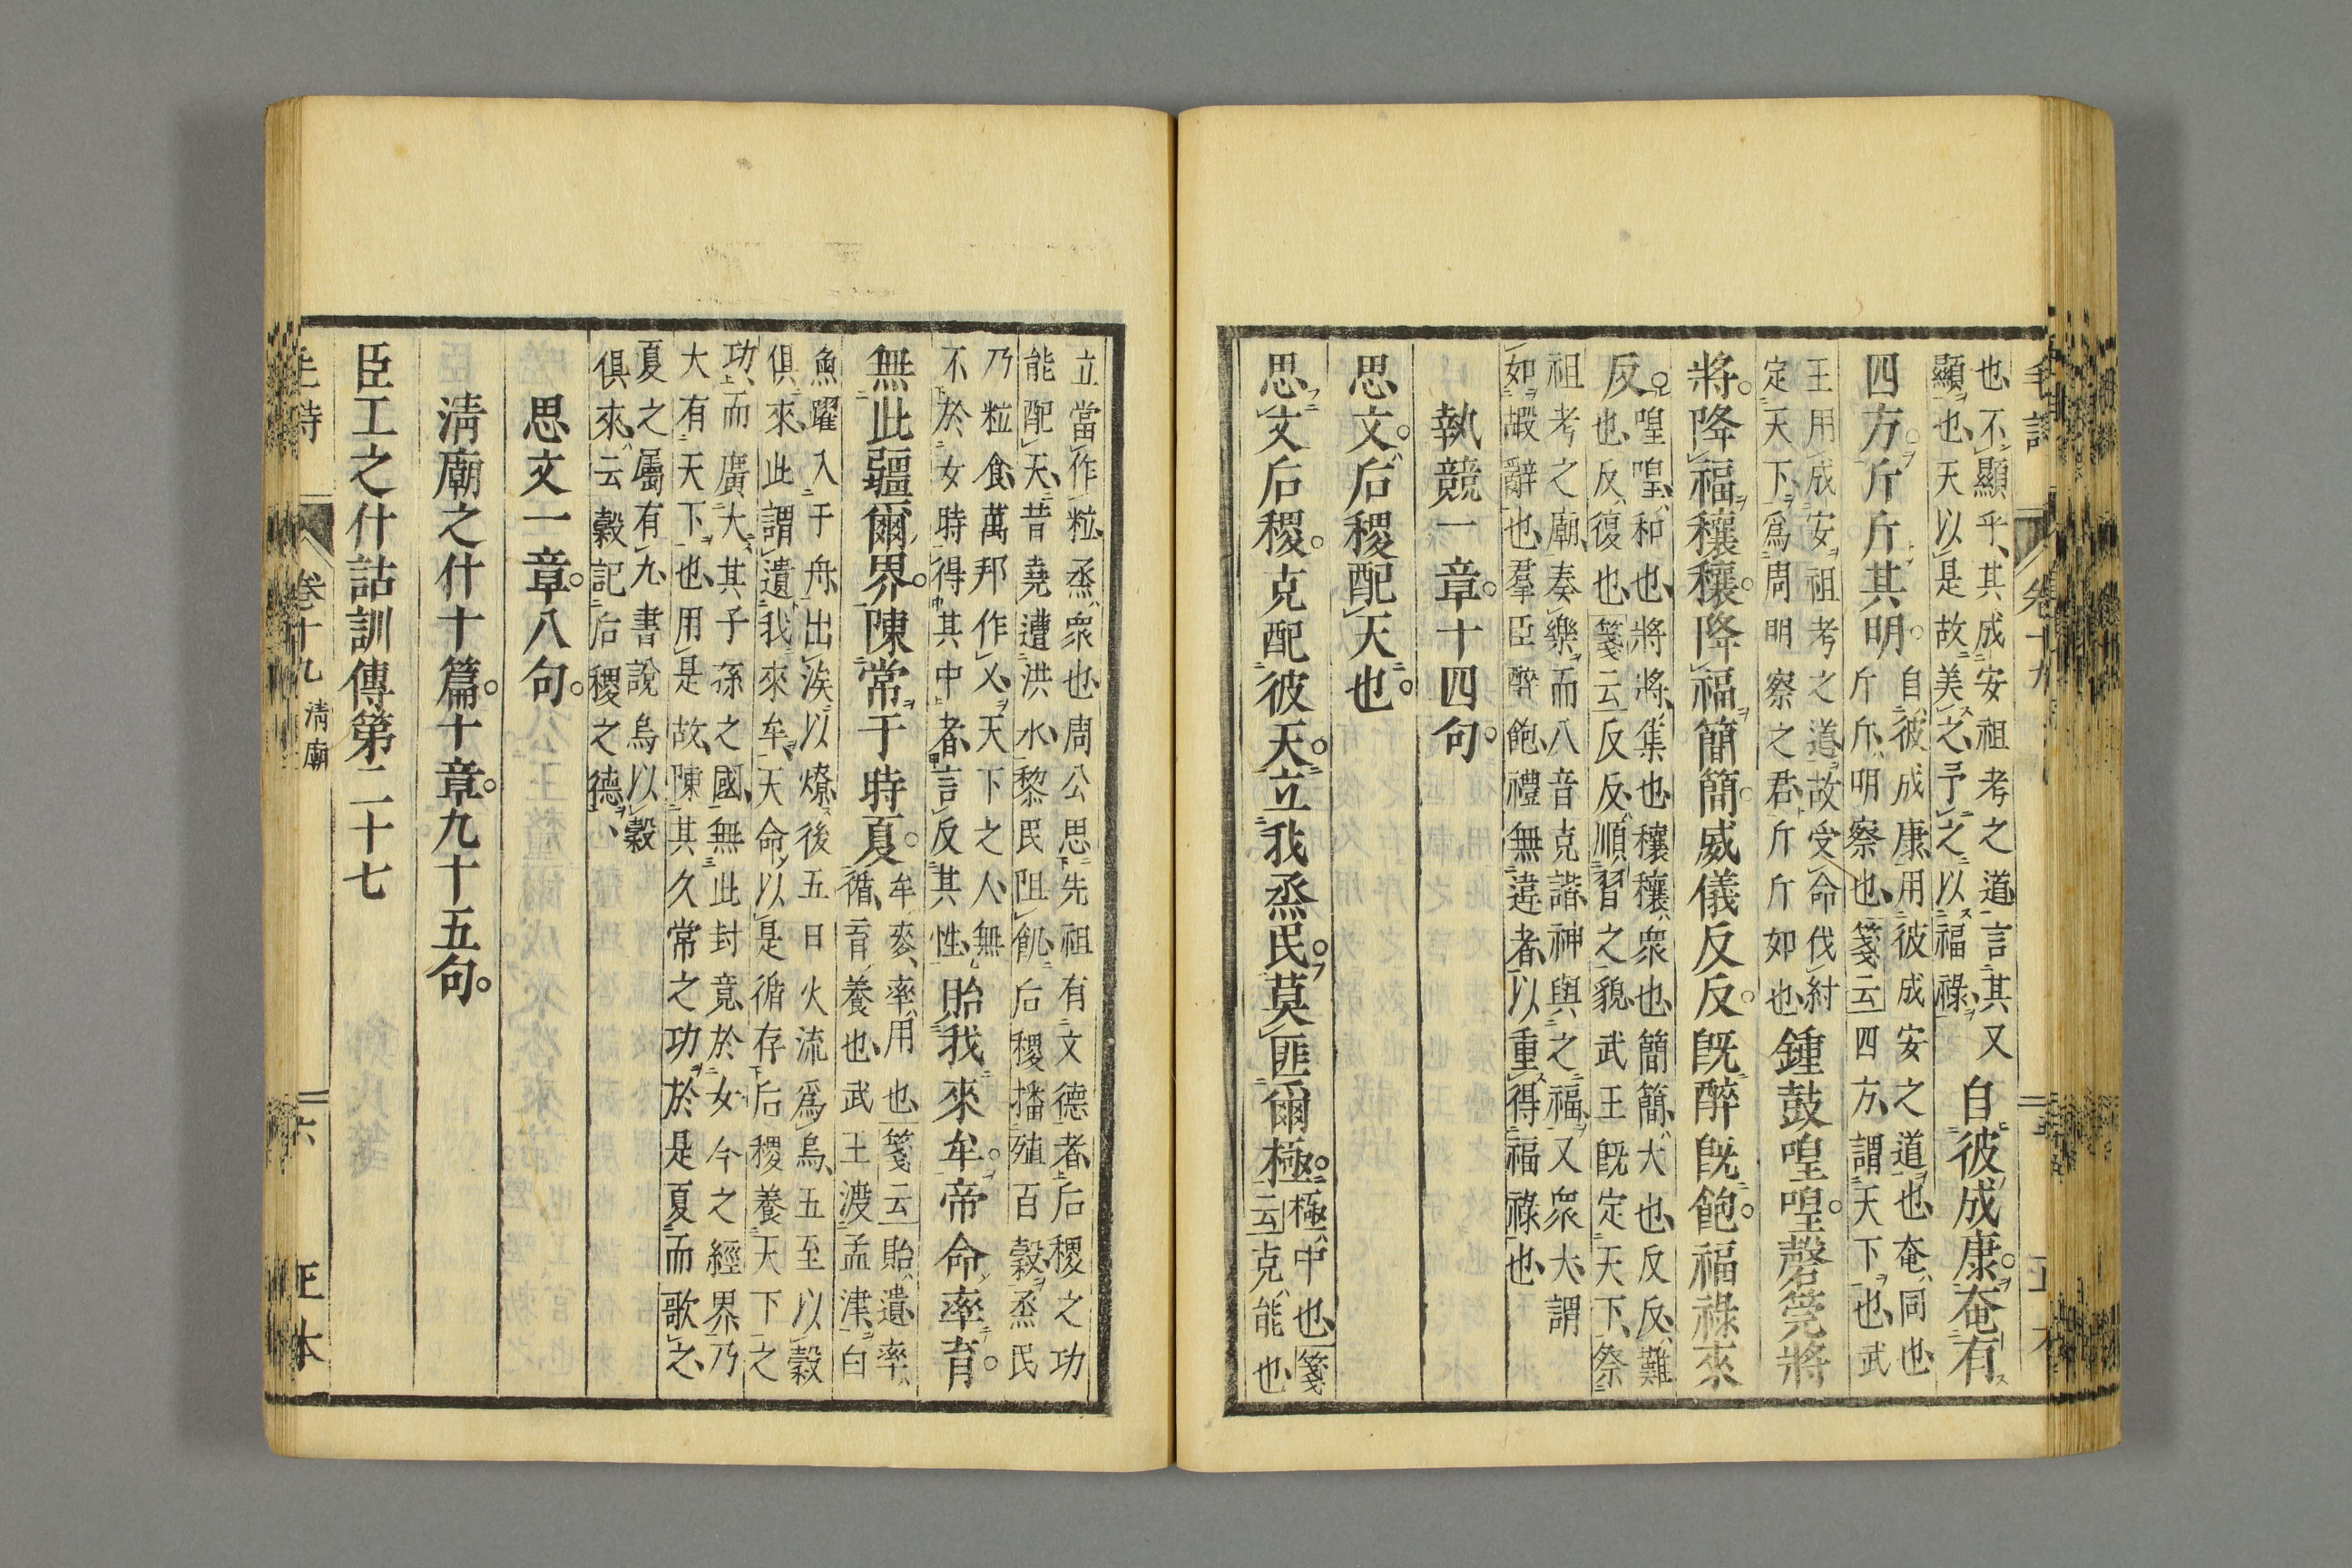 也不顯乎其成安祖考之道言其又
顯也天以是故美之予之以福祿
自彼成康奄有
四方斤斤其明
自彼成康用彼成安之道也奄同也
斤斤明察也箋云四方謂天下也武
王用成安祖考之道故受命伐紂
定天下爲周明察之君斤斤如也
鍾鼓喤喤磬筦將
將降福穰穰降福簡簡威儀反反旣醉旣飽福祿來
反
喤喤和也將將集也穰穰衆也簡簡大也反反難
也反復也箋云反反順習之貌武王旣定天下祭
祖考之廟奏樂而八音克諧神與之福又衆大謂
如嘏辭也羣臣醉飽禮無違者以重得福祿也
執競一章十四句
思文后稷配天也
思文后稷克配彼天立我烝民莫匪爾極
極中也箋
云克能也
立當作粒烝衆也周公思先祖有文德者后稷之功
能配天昔堯遭洪水黎民阻飢后稷播殖百穀烝民
乃粒食萬邦作乂天下之人無
不於女時得其中者言反其性
貽我來牟帝命率育
無此疆爾界陳常于時夏
牟麥率用也箋云貽遺率
循育養也武王渡孟津白
魚躍入于舟出涘以燎後五日火流爲烏五至以穀
俱來此謂遺我來牟天命以是循存后稷養天下之
功而廣大其子孫之國無此封竟於女今之經界乃
大有天下也用是故陳其久常之功於是夏而歌之
夏之屬有九書說烏以穀
俱來云穀記后稷之德
思文一章八句
淸廟之什十篇十章九十五句
臣工之什詁訓傳第二十七
卷十九
淸廟
六